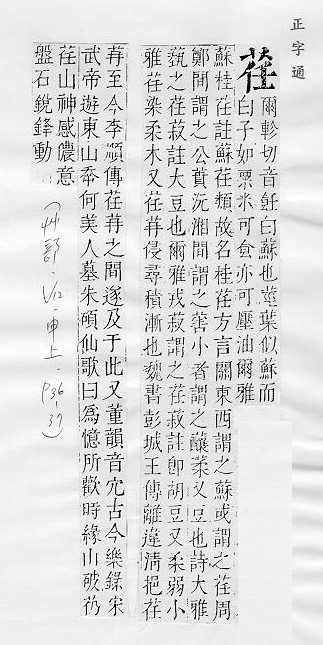 正字通
荏
爾軫切音飪白蘇也莖葉似蘇而
白子如粟米可食亦可壓油爾雅
蘇桂荏註蘇荏類故名桂荏方言關東西謂之蘇或謂之荏周
鄭間謂之公蕡沅湘間謂之小者謂之葇又豆也詩大雅
蓺之荏菽註大豆也爾雅戎菽謂之荏菽註卽胡豆又柔弱小
雅荏染柔木又荏苒侵尋積漸也魏書彭城王傳離違淸挹荏
苒至今李順傳荏苒之間遂及于此又董韻音宂古今樂錄宋
武帝遊東山何美人墓朱碩仙歌曰爲憶所歡時緣山破芿
荏山神感儂意
盤石銳鋒動
(艸部·申上·P36-37)